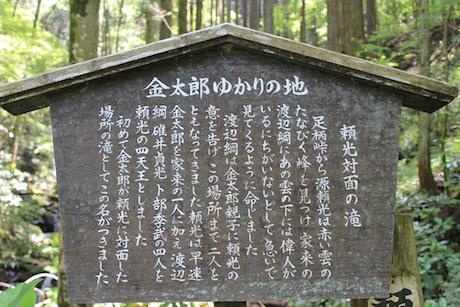 金太郎ゆかりの地
頼光対面の滝
足柄峠から源頼光は赤い雲の
たなびく峰を見つけ家来の
渡辺綱にあの雲の下には偉人が
いるにちがいないとして急いで
見てくるように命じました
渡辺綱は金太郎親子に頼光の
意を告げこの場所まで二人と
ともなってきました頼光は早速
金太郎を家来の一人に加え渡辺
綱碓井貞光卜部季武の四人を
頼光の四天王としました
初めて金太郎が頼光に対面した
場所の滝としてこの名がつきました